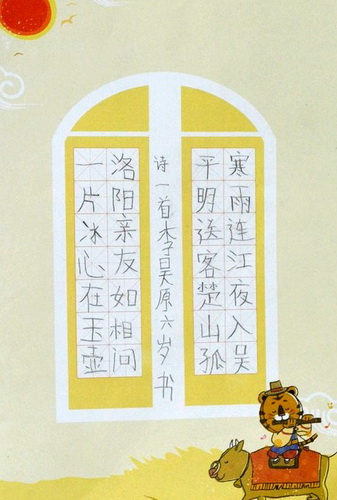 寒雨连江夜入吴
平明送客楚山孤
洛阳亲友如相问
一片冰心在玉壶
诗一首李昊原六岁书